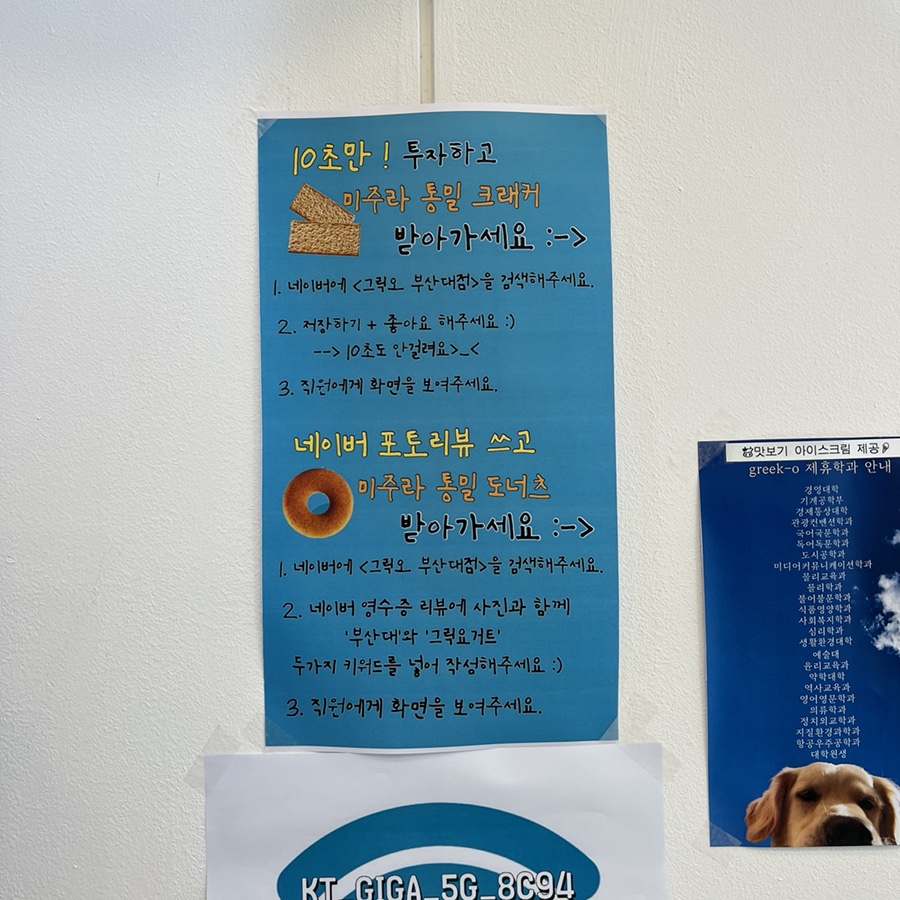 10초만! 투자하고
미주라 통밀 크래커
받아가세요 :->
1. 네이버에 <그릭오 부산대점>을 검색해주세요.
2. 저장하기 + 좋아요 해주세요 :)
--> 10초도 안걸려요>_<
3. 직원에게 화면을 보여주세요.
네이버 포토리뷰 쓰고
미주라 통밀 도너츠
받아가세요 :->
1. 네이버에 <그릭오 부산대점>을 검색해주세요.
2. 네이버 영수증 리뷰에 사진과 함께
'부산대'와 '그릭요거트'
두가지 키워드를 넣어 작성해주세요 :)
3. 직원에게 화면을 보여주세요.
KT_GIGA_5G_8C94
맛보기 아이스크림 제공
greek-o 제휴학과 안내
경영대학
기계공학부
경제통상대학
관광컨벤션학과
국어국문학과
독어독문학과
도시공학과
미디어커뮤니케이션학과
물리교육과
물리학과
불어불문학과
식품영양학과
사회복지학과
심리학과
생활환경대학
예술대
윤리교육과
약학대학
역사교육과
영어영문학과
의류학과
정치외교학과
지질환경과학과
항공우주공학과
대학원생